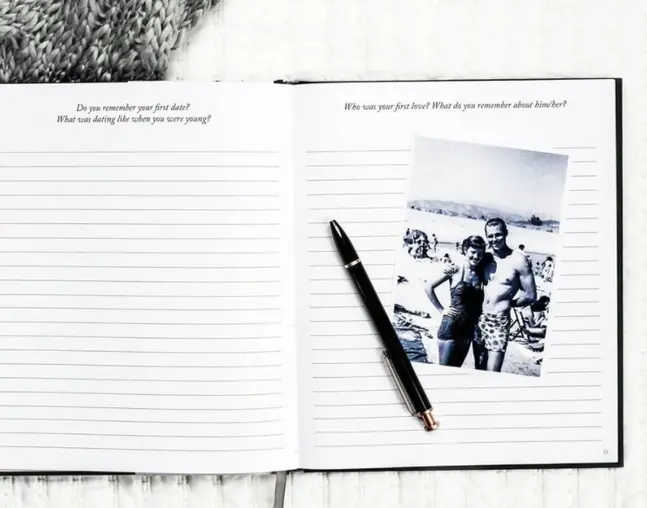 Do you remember your first date?
What was dating like when you were young?
Who was your first love? What do you remember about him/her?
11